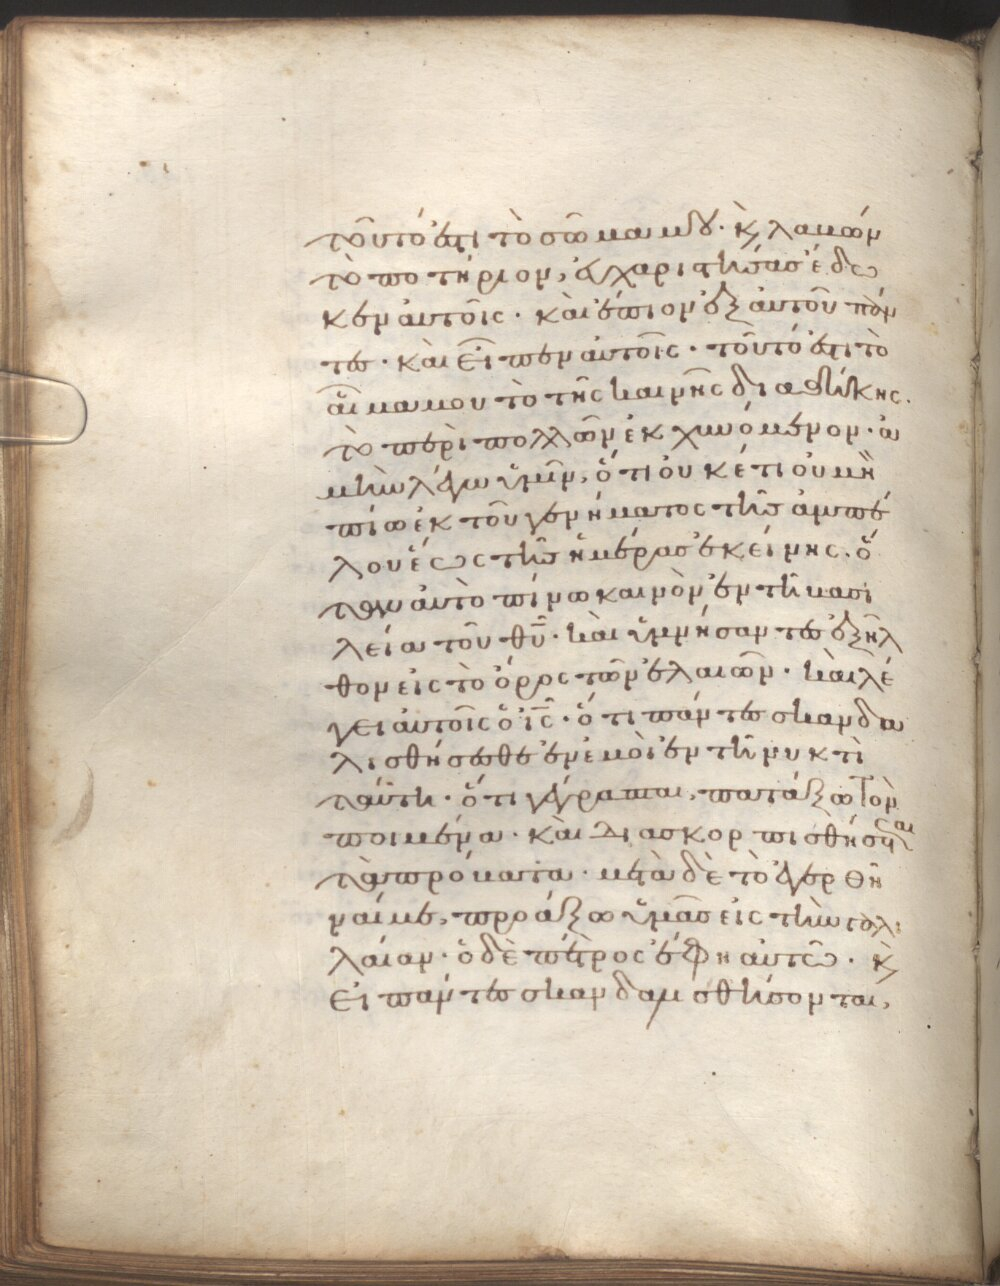 τοῦτό ἐστι τὸ σῶμα μου· κ̀ λαβὼν
τὸ ποτήριον, εὐχαριστήσας ἔδω
κεν αὐτοῖς· καὶ ἔπιον ἐξ αὐτοῦ πάν
τες· καὶ εἶπεν αὐτοῖς· τοῦτό ἐστι τὸ
αἷμα μου τὸ τῆς καινῆς διαθήκης.
τὸ περὶ πολλῶν ἐκχυνόμενον· ἀ
μὴν λέγω ὑμῖν, ὅτι οὐκέτι οὐ μὴ
πίω ἐκ τοῦ γενήματος τῆς ἀμπέ
λου ἕως τῆς ἡμέρας ἐκείνης. ὅ
ταν αὐτὸ πίνω καινὸν ἐν τῆ βασι
λεία τοῦ θῦ· καὶ ὑμνήσαντες ἐξῆλ
θον εἰς τὸ ὄρος τῶν ἐλαιῶν· καὶ λέ
γει αὐτοῖς ὁ ις· ὅτι πάντες σκανδα
λισθήσεσθε ἐν ἐμοὶ ἐν τῆ νυκτὶ
ταύτη· ὅτι γέγραπται, πατάξω τὸν
ποιμένα· καὶ διασκορπισθήσεται
τὰ πρόβατα· μετὰ δὲ τὸ ἐγερθῆ
ναί με, προάξω ὑμᾶς εἰς τὴν γαλι
λαίαν· ὁ δὲ πέτρος ἔφη αὐτῶ· κ̀
εἰ πάντες σκανδαλισθήσονται,